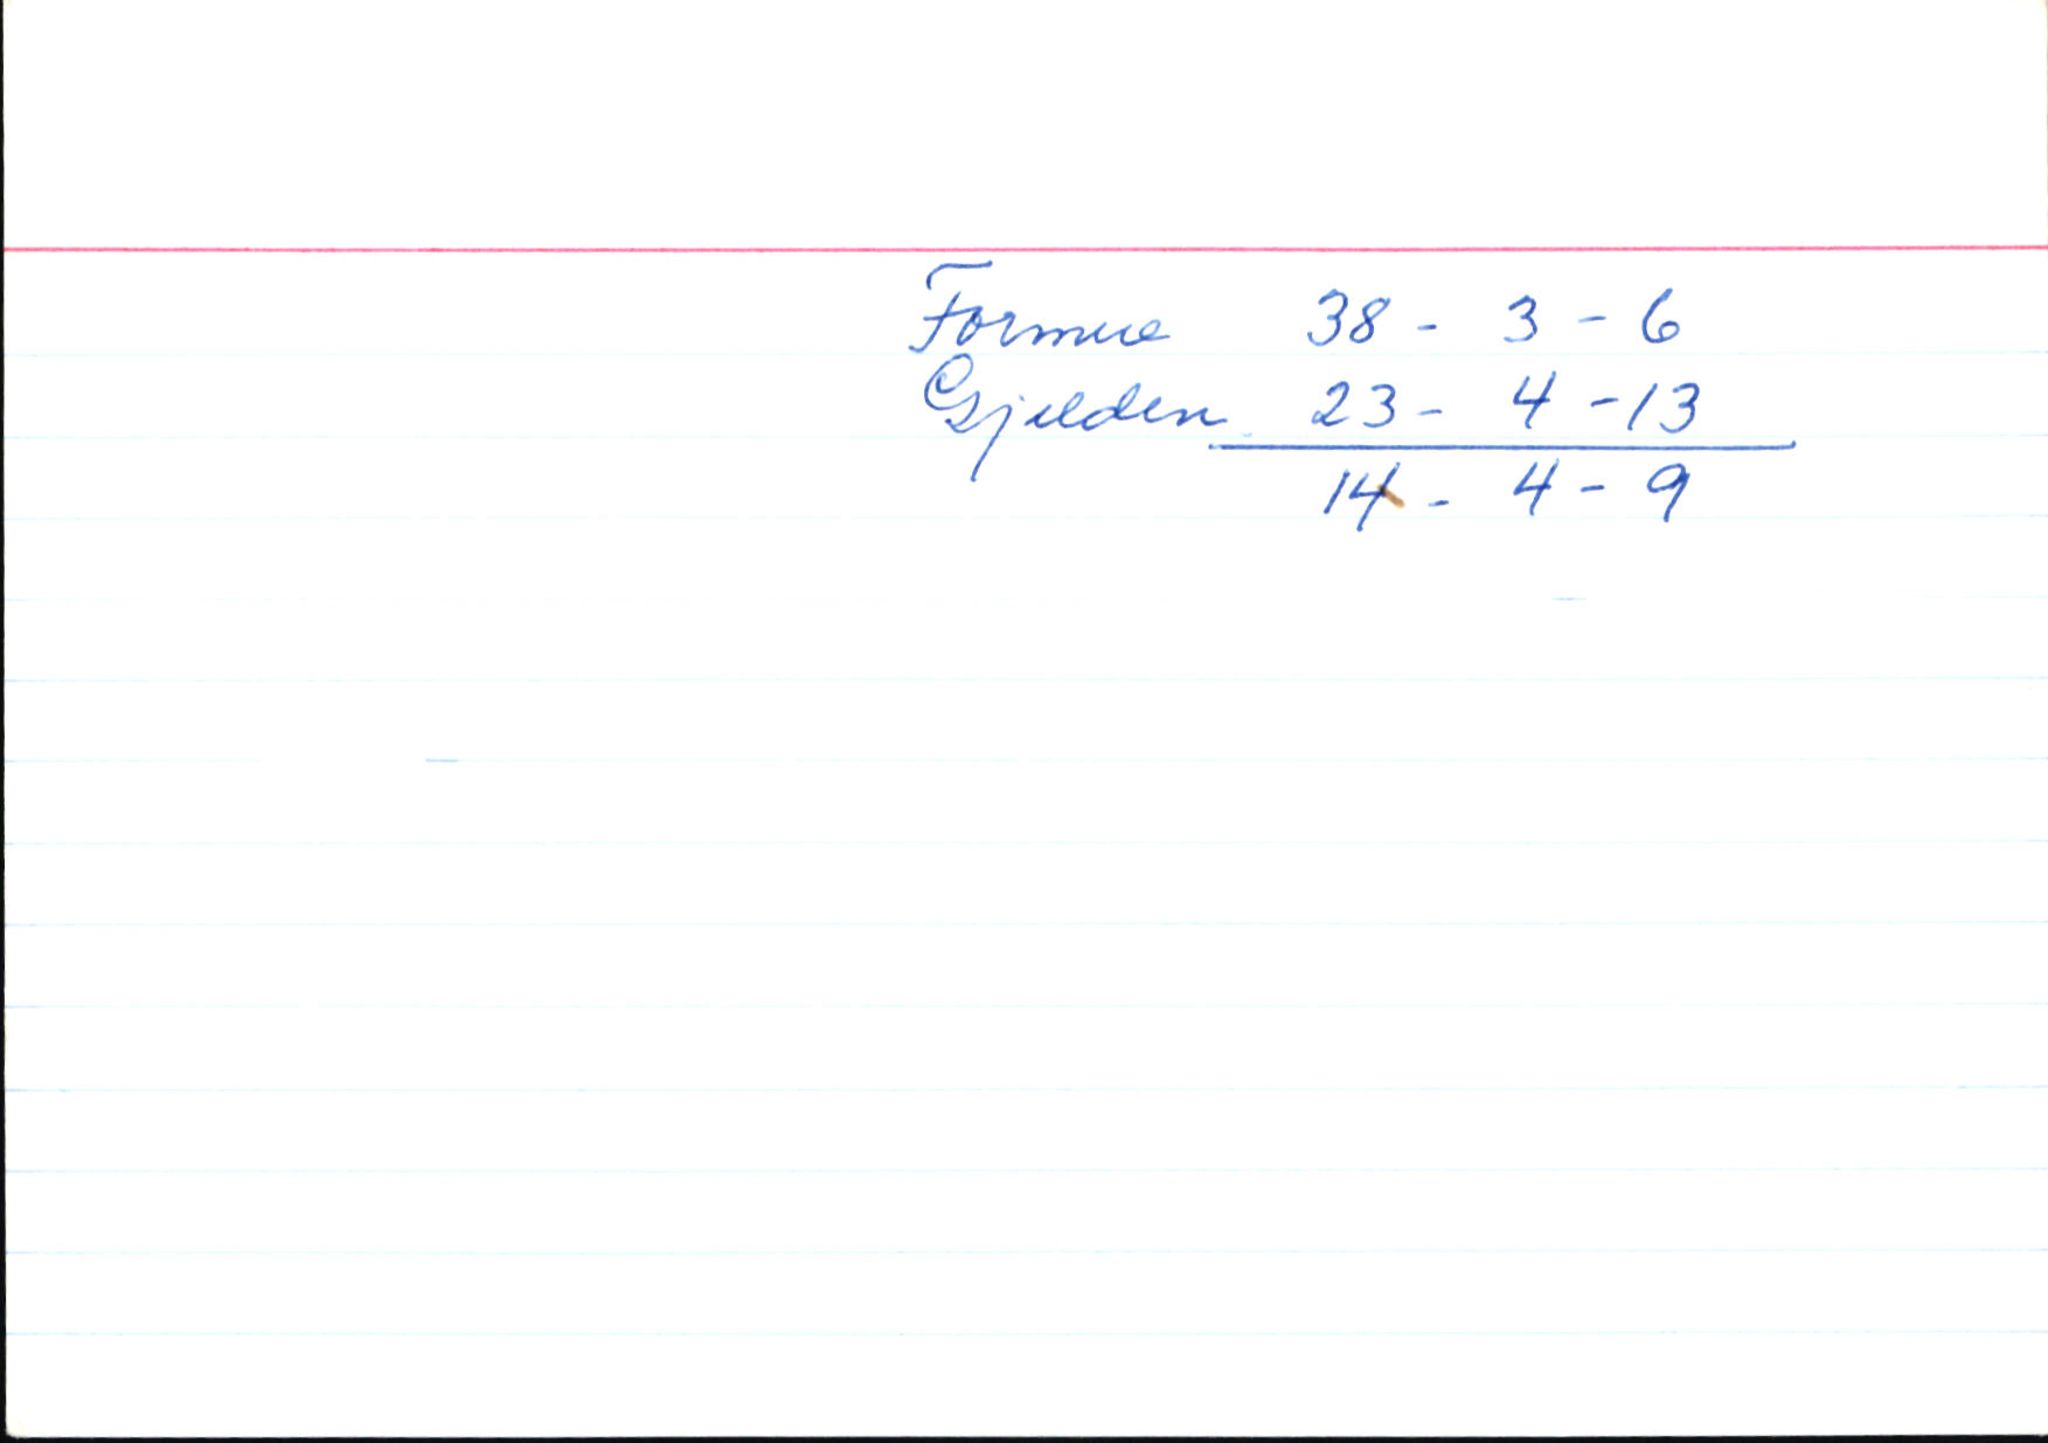 Formue 38 - 3 - 6
Gjelden 23 - 4 - 13
14 - 4 - 9